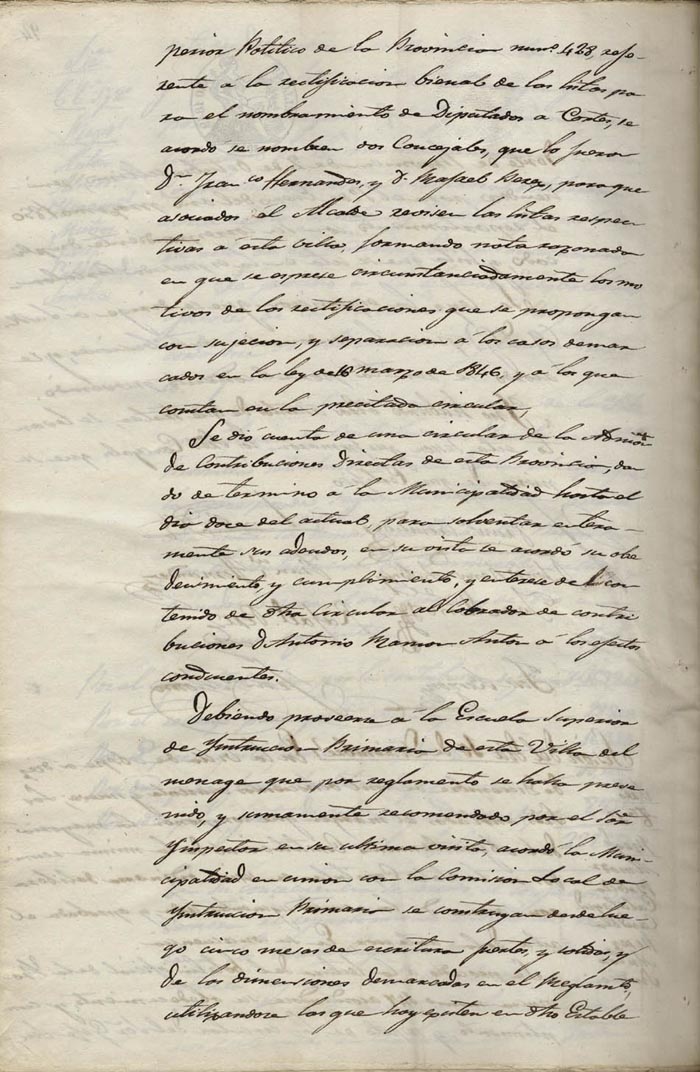 perior Politico de la Provincia num.º 428, refe-
rente á la rectificacion bienal de las listas pa
ra el nombramiento de Diputados a Cortes, se
acordo se nombren dos Concejales, que lo fueron
D.n Fran co Hernandes, y D. Rafael Perez, para que
asociados al Alcalde revisen las listas respec
tivas á esta villa, formando nota razonada
en que se esprese circunstanciadamente los mo
tivos de las rectificaciones que se propongan
con sujecion, y separacion á los casos demar
cados en la ley de 18 marzo de 1846, y á los que
constan en la precitada circular,
Se dió cuenta de una circular de la Admon
de Contribuciones Directas de esta Provincia, dan
do de termino a la Municipalidad hasta el
dia doce del actual, para solventar entera-
mente sus adeudos, en su vista se acordó su obe
decimiento, y cumplimiento, y enterese del con
tenido de dha Circular al Cobrador de contri
buciones D. Antonio Ramon Anton á los efectos
conducentes.
Debiendo proveerse á la Escuela Superior
de Ynstruccion Primaria de esta Villa del
menage que por reglamento se halla preve
nido, y sumamente recomendado por el Sor
Ynspector en su ultima visita, acordó la Muni-
cipalidad en union con la Comision Local de
Ynstruccion Primaria se construyan desde lue-
go cinco mesas de escritura fuertes, y solidas, y
de las dimensiones demarcadas en el Reglamto,
utilizandose las que hoy existen en dho Estable